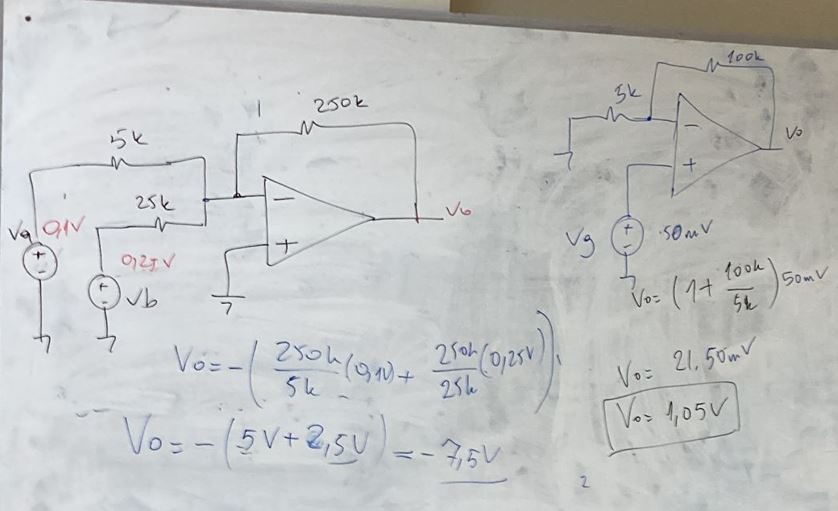 250k
5k
25k
Va 0,1V
0,25V
Vb
−
+
Vo
Vo=-(250k/5k (0,1V) + 250k/25k (0,25V))
Vo=-(5V+2,5V) = -7,5V
100k
5k
−
+
Vo
Vg
50mV
Vo= (1+ 100k/5k) 50mV
Vo= 21.50mV
Vo= 1,05V
2